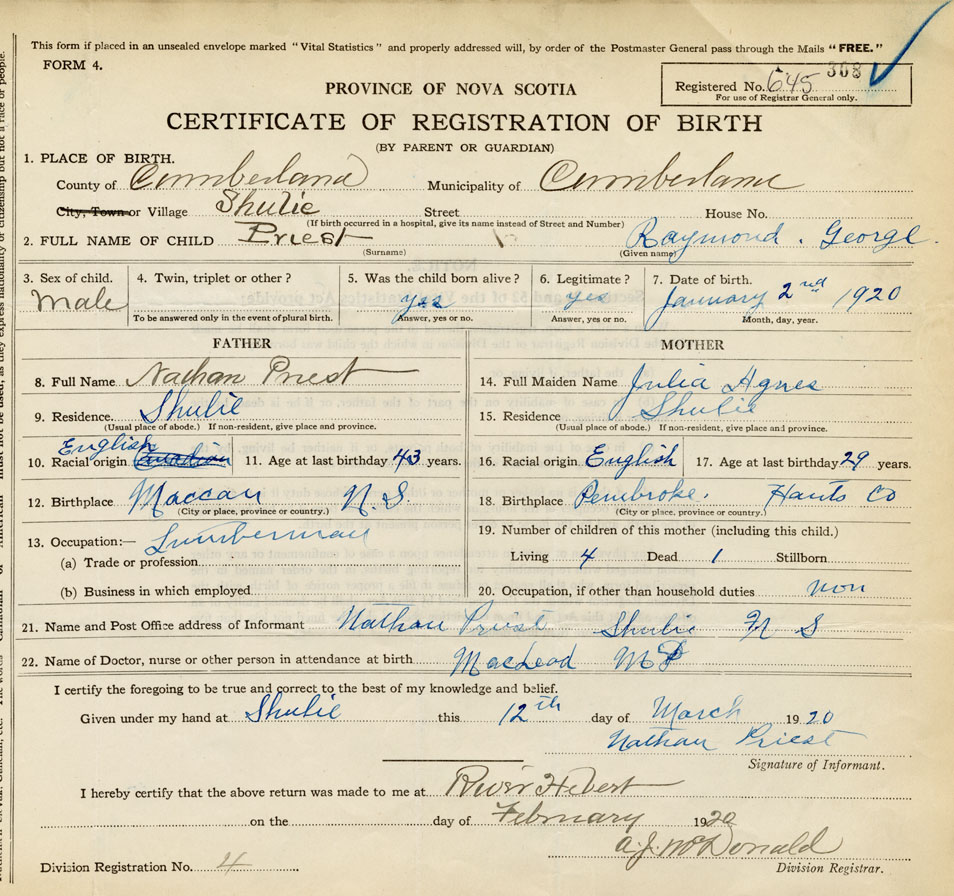 This form if placed in an unsealed envelope marked "Vital Statistics" and properly addressed will, by order of the Postmaster General pass through the Mails "FREE."
FORM 4.
368
Registered No. 645
For use of Registrar General only.
PROVINCE OF NOVA SCOTIA
CERTIFICATE OF REGISTRATION OF BIRTH
(BY PARENT OR GUARDIAN)
1. PLACE OF BIRTH.
County of Cumberland Municipality of Cumberland
City, Town or Village Shulie Street House No.
(If birth occurred in a hospital, give its name instead of Street and Number)
2. FULL NAME OF CHILD Priest Raymond. George.
(Surname) (Given name)
3. Sex of child. 4. Twin, triplet or other? 5. Was the child born alive? 6. Legitimate? 7. Date of birth.
Male yes yes January 2nd 1920
To be answered only in the event of plural birth. Answer, yes or no. Answer, yes or no. Month, day, year.
FATHER MOTHER
8. Full Name Nathan Priest 14. Full Maiden Name Julia Agnes
9. Residence. Shulie 15. Residence Shulie
(Usual place of abode.) If non-resident, give place and province. (Usual place of abode.) If non-resident, give place and province.
English
10. Racial origin Canadian 11. Age at last birthday 43 years. 16. Racial origin English 17. Age at last birthday 29 years.
12. Birthplace Maccan N.S. 18. Birthplace Pembroke. Hants Co
(City or place, province or country.) (City or place, province or country.)
13. Occupation:— Lumberman 19. Number of children of this mother (including this child.)
(a) Trade or profession Living 4 Dead 1 Stillborn
(b) Business in which employed 20. Occupation, if other than household duties non
21. Name and Post Office address of Informant Nathan Priest Shulie N S
22. Name of Doctor, nurse or other person in attendance at birth MacLeod MD
I certify the foregoing to be true and correct to the best of my knowledge and belief.
Given under my hand at Shulie this 12th day of March 1920
Nathan Priest
Signature of Informant.
I hereby certify that the above return was made to me at River Hebert
on the day of February 1920
A.J. McDonald
Division Registration No. 4 Division Registrar.